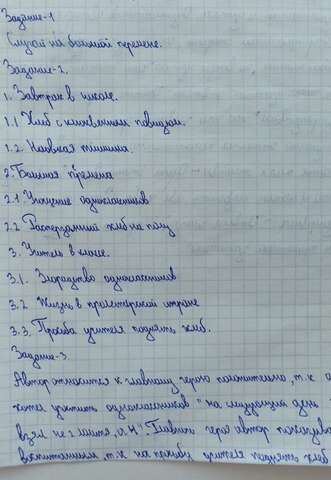 Задание-1
Случай на большой перемене.
Задание-2.
1. Завтрак в школе.
1.1 Хлеб с клюквенным повидлом.
1.2. Неловкая тишина.
2. Большая перемена
2.1 Угощение одноклассников
2.2 Растерзанный хлеб на полу
3. Учитель в классе.
3.1. Злорадство одноклассников
3.2 Жизнь в пролетарской стране
3.3. Просьба учителя поднять хлеб.
Задание-3.
Автор относится к главному герою положительно, т.к
хотел угостить одноклассников "на следующий день
взял не 2 ломтя, а 4". Главный герой автор
воспитанным, т.к на просьбу учителя поднять хлеб